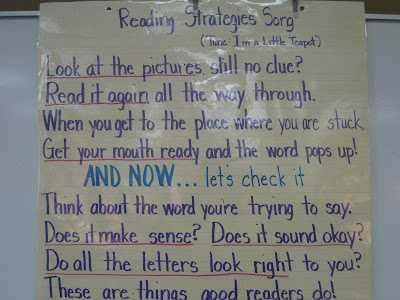 Reading Strategies Song
(Tune: I'm a Little Teapot)
Look at the pictures, still no clue?
Read it again all the way through.
When you get to the place where you are stuck,
Get your mouth ready and the word pops up!
AND NOW... let's check it
Think about the word you're trying to say.
Does it make sense? Does it sound okay?
Do all the letters look right to you?
These are things good readers do!